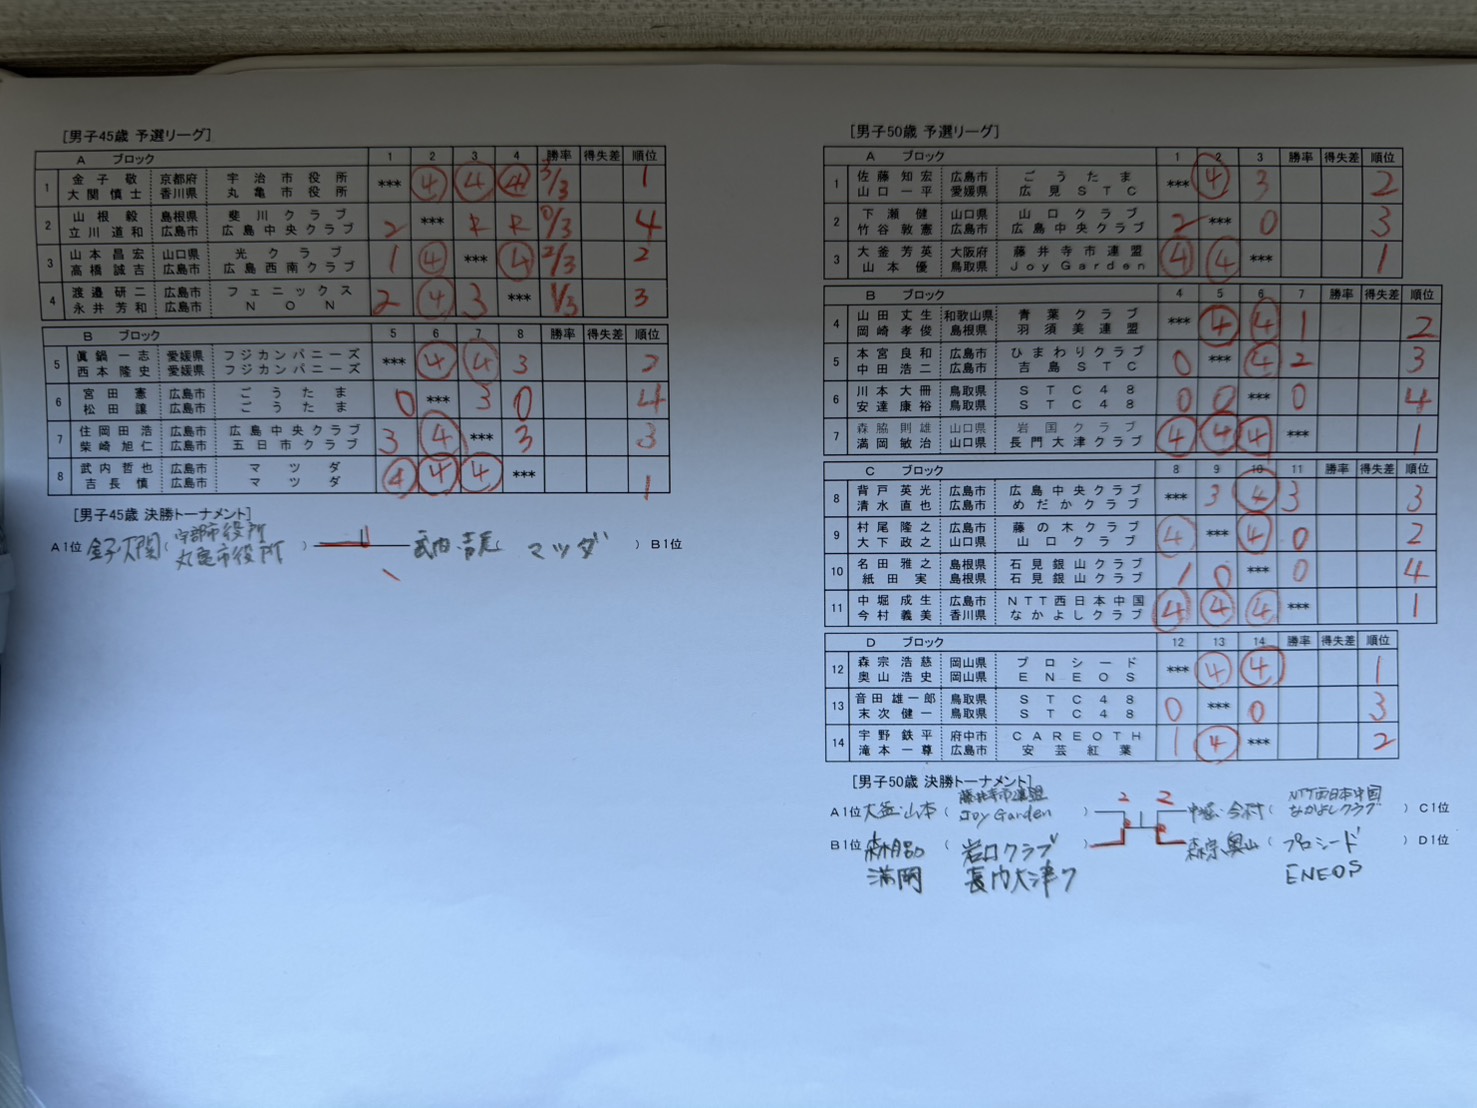 [男子45歳 予選リーグ]
A ブロック 1 2 3 4 勝率 得失差 順位
1 金子 敬 京都府 宇治市役所 *** ④ ④ ④ 3/3 1
大関慎士 香川県 丸亀市役所
2 山根 毅 島根県 斐川クラブ 2 *** R R 0/3 4
立川道和 広島市 広島中央クラブ
3 山本昌宏 山口県 光クラブ 1 ④ *** ④ 2/3 2
高橋誠吉 広島市 広島西南クラブ
4 渡邉研二 広島市 フェニックス 2 ④ 3 *** 1/3 3
永井芳和 広島市 NON
B ブロック 5 6 7 8 勝率 得失差 順位
5 眞鍋一志 愛媛県 フジカンパニーズ *** ④ ④ 3 2
西本隆史 愛媛県 フジカンパニーズ
6 宮田 憲 広島市 ごうたま 0 *** 3 0 4
松田 譲 広島市 ごうたま
7 住岡田浩 広島市 広島中央クラブ 3 ④ *** 3 3
柴崎旭仁 広島市 五日市クラブ
8 武内哲也 広島市 マツダ ④ ④ ④ *** 1
吉長 慎 広島市 マツダ
[男子45歳 決勝トーナメント]
A1位 金子・大関 ( 宇部市役所 丸亀市役所 ) 武内・吉長 ( マツダ ) B1位
[男子50歳 予選リーグ]
A ブロック 1 2 3 勝率 得失差 順位
1 佐藤知宏 広島市 ごうたま *** ④ 3 2
山口一平 愛媛県 広見STC
2 下瀬 健 山口県 山口クラブ 2 *** 0 3
竹谷敦憲 広島市 広島中央クラブ
3 大釜芳英 大阪府 藤井寺市連盟 ④ ④ *** 1
山本 優 鳥取県 JoyGarden
B ブロック 4 5 6 7 勝率 得失差 順位
4 山田丈生 和歌山県 青葉クラブ *** ④ ④ 1 2
岡崎孝俊 島根県 羽須美連盟
5 本宮良和 広島市 ひまわりクラブ 0 *** ④ 2 3
中田浩二 広島市 吉島STC
6 川本大冊 鳥取県 STC48 0 0 *** 0 4
安達康裕 鳥取県 STC48
7 森脇則雄 山口県 岩国クラブ ④ ④ ④ *** 1
満岡敏治 山口県 長門大津クラブ
C ブロック 8 9 10 11 勝率 得失差 順位
8 背戸英光 広島市 広島中央クラブ *** 3 ④ 3 3
清水直也 広島市 めだかクラブ
9 村尾隆之 広島市 藤の木クラブ ④ *** ④ 0 2
大下政之 山口県 山口クラブ
10 名田雅之 島根県 石見銀山クラブ 1 0 *** 0 4
紙田 実 島根県 石見銀山クラブ
11 中堀成生 広島市 NTT西日本中国 ④ ④ ④ *** 1
今村義美 香川県 なかよしクラブ
D ブロック 12 13 14 勝率 得失差 順位
12 森宗浩慈 岡山県 プロシード *** ④ ④ 1
奥山浩史 岡山県 ENEOS
13 音田雄一郎 鳥取県 STC48 0 *** 0 3
末次健一 鳥取県 STC48
14 宇野鉄平 府中市 CAREOTH 1 ④ *** 2
滝本一尊 広島市 安芸紅葉
[男子50歳 決勝トーナメント]
A1位 大釜・山本 ( 藤井寺市連盟 JoyGarden ) 2 2 中堀・今村 ( NTT西日本中国 なかよしクラブ ) C1位
B1位 森脇 ( 岩国クラブ ) 森宗・奥山 ( プロシード ) D1位
満岡 長門大津ク ENEOS